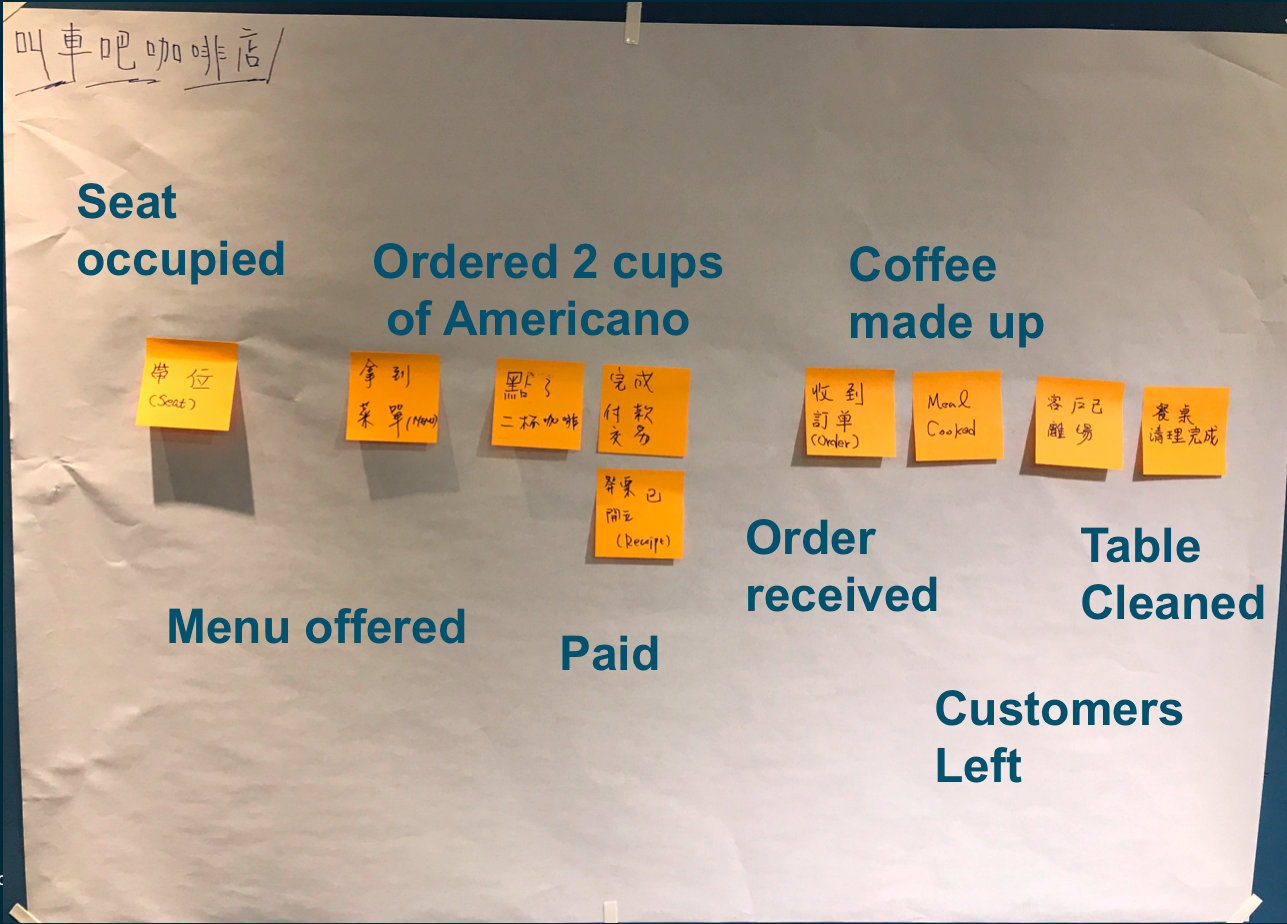 叫車吧咖啡店
Seat
occupied
Ordered 2 cups
of Americano
Coffee
made up
帶位
(Seat)
拿到
菜單(Menu)
點了
二杯咖啡
完成
付款
交易
發票已
開立
(Receipt)
收到
訂单
(Order)
Meal
Cooked
客戶已
離場
餐桌
清理完成
Menu offered
Paid
Order
received
Table
Cleaned
Customers
Left